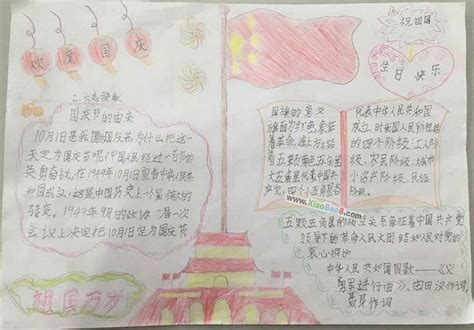 欢度国庆
祝祖国
生日快乐
二、六
国庆节的由来
10月1日是我国国庆节,为什么把这一
天定为国庆节呢?中国人民经过一百多年的
英勇奋战,在1949年10月1日宣告中华人民共
和国成立,这是中国历史上一个最伟大的
转变。1949年
会议上决定把10月1日定为国庆节
国旗的意义
旗面为红色,象征
着革命,旗上
五颗黄色五角星
大星代表中国共产
党,四个小五角星
代表中华人民共和国成
立时,我国人民所包括
的四个阶级:工人阶
级、农民阶级、城市
小资产阶级、民族
五颗五角星的相互关系象征着中国共产党
领导下的革命人民大团结和人民对党的
衷心拥护
中华人民共和国国歌——《义
勇军进行曲》,由田汉作词,
聂耳作词
祖国万岁
www.XiaoBao8.com